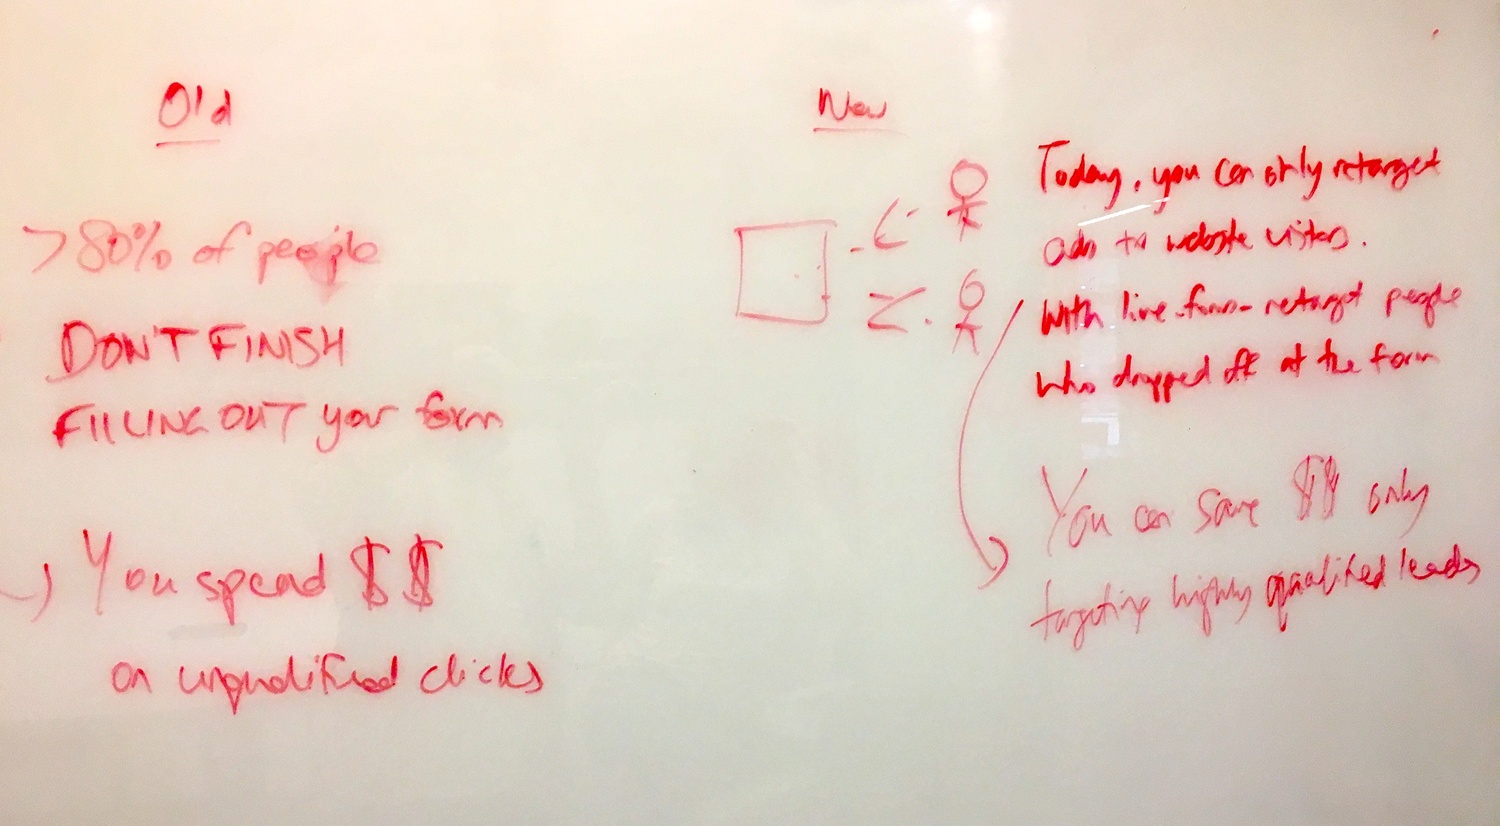 Old
>80% of people
DON'T FINISH
FILLING OUT your form
You spend $$
on unqualified clicks
New
Today, you can only retarget
ads to website visitors.
With live-form- retarget people
who dropped off at the form
You can save $$ only
targeting highly qualified leads